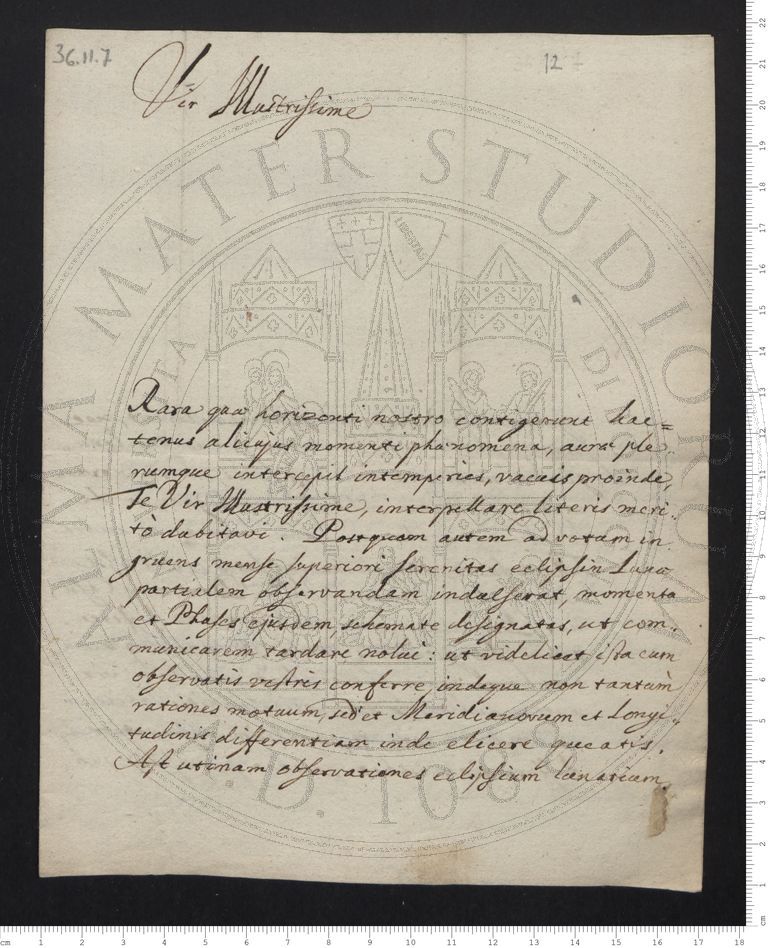 36.II.7
12
Vir Illustrissime
Rara quæ horizonti nostro contigerunt hac=
tenus alicujus momenti phænomena, auræ ple
rumque intercepit intemperies, vacuis proinde,
Te Vir Illustrissime, interpellare literis meri
tò dubitavi. Postquam autem ad votum in
gruens mense superiori serenitas eclipsin Lunæ
partialem observandam indulserat, momenta
et Phases ejusdem, schemate designatas, ut com
municarem tardare nolui: ut videlicet ista cum
observatis vestris conferre, indeque non tantùm
rationes motuum, sed et Meridianorum et Longi
tudinis differentiam inde elicere queatis.
Ast utinam observationes eclipsium lunarium
ALMA MATER STUDIORUM
A.D. 1088
LIBERTAS